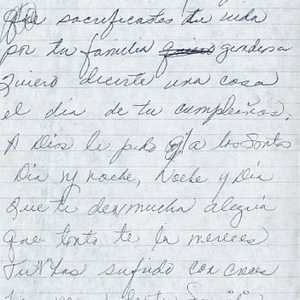 Que sacrificastes tu vida
por tu familia
Quiero decirte una cosa
el dia de tu cumpleaños.
A Dios le pido y a los Santos
Dia y noche, Noche y Dia
Que te den mucha alegria
Que tonto te la mereces
Tu has sufrido con creces